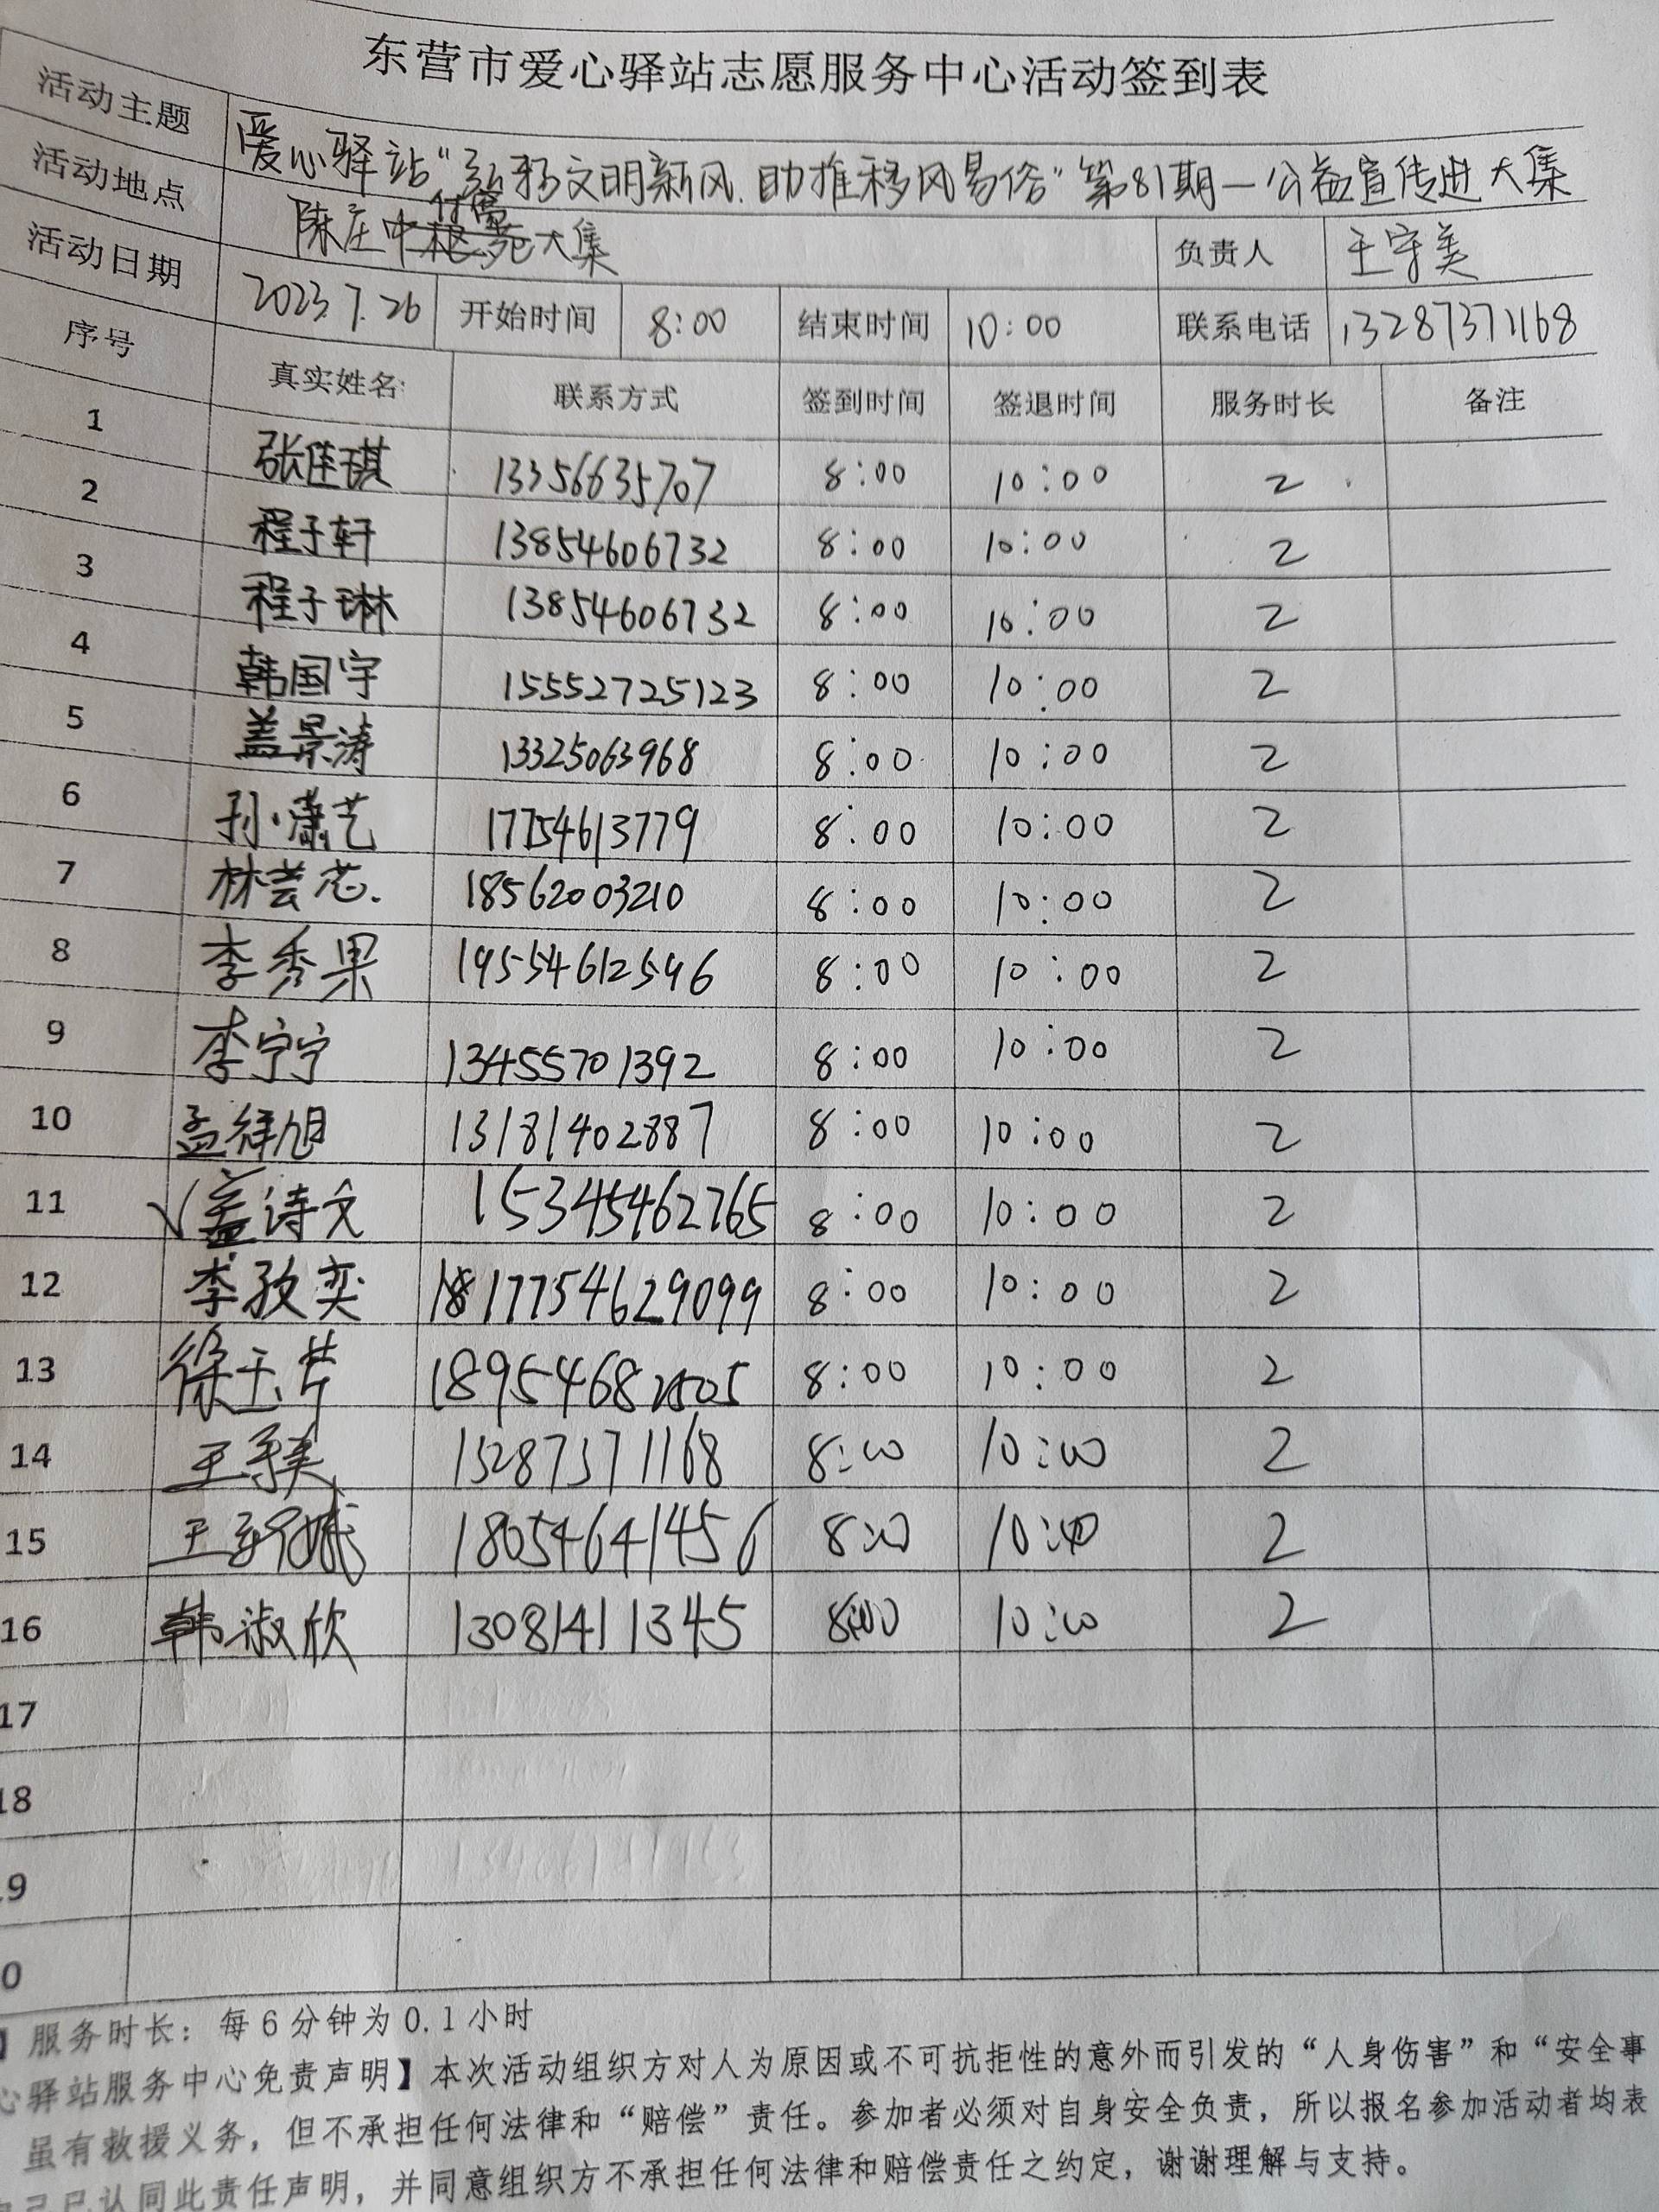 东营市爱心驿站志愿服务中心活动签到表
活动主题 爱心驿站“弘扬文明新风.助推移风易俗”第81期—公益宣传进大集
付窝
活动地点 陈庄中 大集 负责人 王守美
活动日期 2023.7.26 开始时间 8:00 结束时间 10:00 联系电话 13287371168
序号 真实姓名: 联系方式 签到时间 签退时间 服务时长 备注
1 张佳琪 13356635707 8:00 10:00 2
2 程子轩 13854606732 8:00 10:00 2
3 程子琳 13854606732 8:00 10:00 2
4 韩国宇 15552725123 8:00 10:00 2
5 盖景涛 13325063968 8:00 10:00 2
6 孙潇艺 17754613779 8:00 10:00 2
7 林芸芯. 18562003210 8:00 10:00 2
8 李秀果 19554612596 8:00 10:00 2
9 李宁宁 13455701392 8:00 10:00 2
10 孟祥旭 13181402887 8:00 10:00 2
11 √盖诗文 15345462765 8:00 10:00 2
12 李孜奕 17754629099 8:00 10:00 2
13 徐玉芹 8:00 10:00 2
14 王守美 13287371168 8:00 10:00 2
15 18054641456 8:00 10:00 2
16 韩淑欣 13081411345 8:00 10:00 2
17
18
9
0
】服务时长：每6分钟为0.1小时
心驿站服务中心免责声明】本次活动组织方对人为原因或不可抗拒性的意外而引发的“人身伤害”和“安全事
虽有救援义务，但不承担任何法律和“赔偿”责任。参加者必须对自身安全负责，所以报名参加活动者均表
自己已认同此责任声明，并同意组织方不承担任何法律和赔偿责任之约定，谢谢理解与支持。